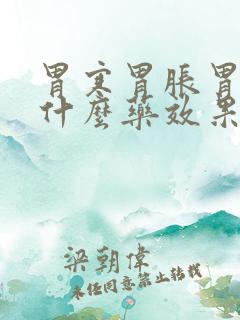 胃寒胃胀胃
什麼藥效果
梁朝偉
未经同意禁止转载